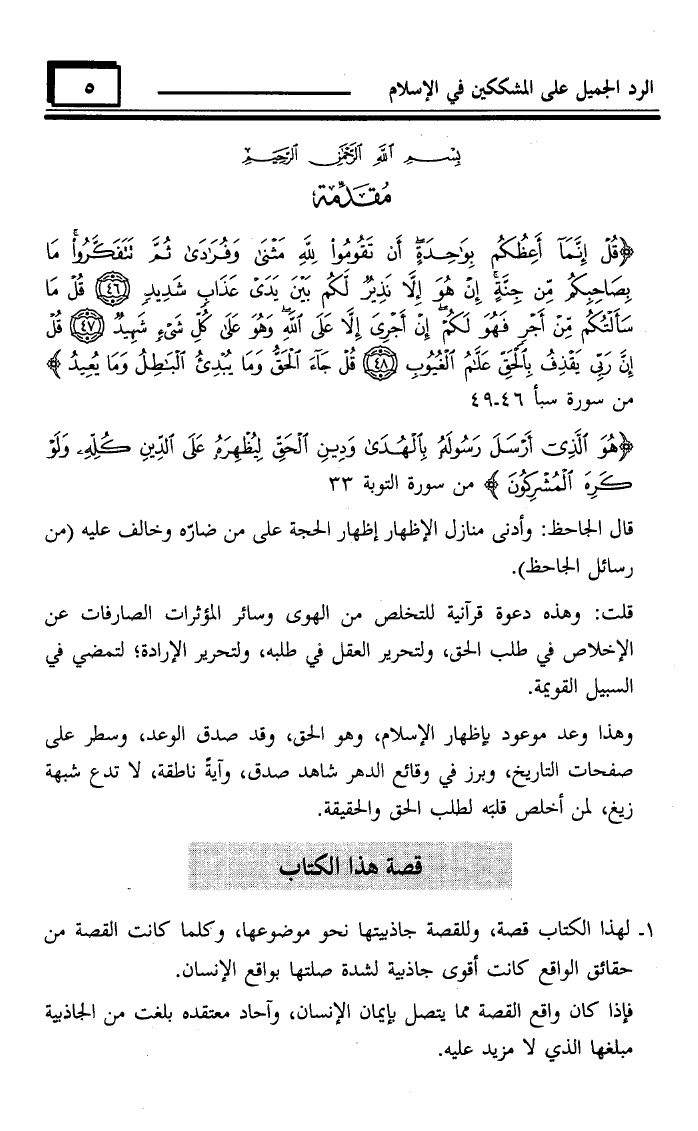 الرد الجميل على المشككين في الإسلام ٥
بِسْمِ اللَّهِ الرَّحْمَٰنِ الرَّحِيمِ
مُقَدِّمَة
﴿قُلْ إِنَّمَآ أَعِظُكُم بِوَٰحِدَةٍ ۖ أَن تَقُومُوا۟ لِلَّهِ مَثْنَىٰ وَفُرَٰدَىٰ ثُمَّ تَتَفَكَّرُوا۟ ۚ مَا
بِصَاحِبِكُم مِّن جِنَّةٍ ۚ إِنْ هُوَ إِلَّا نَذِيرٌ لَّكُم بَيْنَ يَدَىْ عَذَابٍ شَدِيدٍ ﴿٤٦﴾ قُلْ مَا
سَأَلْتُكُم مِّنْ أَجْرٍ فَهُوَ لَكُمْ ۖ إِنْ أَجْرِىَ إِلَّا عَلَى ٱللَّهِ ۖ وَهُوَ عَلَىٰ كُلِّ شَىْءٍ شَهِيدٌ ﴿٤٧﴾ قُلْ
إِنَّ رَبِّى يَقْذِفُ بِٱلْحَقِّ عَلَّٰمُ ٱلْغُيُوبِ ﴿٤٨﴾ قُلْ جَآءَ ٱلْحَقُّ وَمَا يُبْدِئُ ٱلْبَٰطِلُ وَمَا يُعِيدُ﴾
من سورة سبأ ٤٦-٤٩
﴿هُوَ ٱلَّذِىٓ أَرْسَلَ رَسُولَهُۥ بِٱلْهُدَىٰ وَدِينِ ٱلْحَقِّ لِيُظْهِرَهُۥ عَلَى ٱلدِّينِ كُلِّهِۦ وَلَوْ
كَرِهَ ٱلْمُشْرِكُونَ﴾ من سورة التوبة ٣٣
قال الجاحظ: وأدنى منازل الإظهار إظهار الحجة على من ضارّه وخالف عليه (من
رسائل الجاحظ).
قلت: وهذه دعوة قرآنية للتخلص من الهوى وسائر المؤثرات الصارفات عن
الإخلاص في طلب الحق، ولتحرير العقل في طلبه، ولتحرير الإرادة؛ لتمضي في
السبيل القويمة.
وهذا وعد موعود بإظهار الإسلام، وهو الحق، وقد صدق الوعد، وسطر على
صفحات التاريخ، وبرز في وقائع الدهر شاهد صدق، وآيةً ناطقة، لا تدع شبهة
زيغ، لمن أخلص قلبَه لطلب الحق والحقيقة.
قصة هذا الكتاب
١- لهذا الكتاب قصة، وللقصة جاذبيتها نحو موضوعها، وكلما كانت القصة من
حقائق الواقع كانت أقوى جاذبية لشدة صلتها بواقع الإنسان.
فإذا كان واقع القصة مما يتصل بإيمان الإنسان، وآحاد معتقده بلغت من الجاذبية
مبلغها الذي لا مزيد عليه.